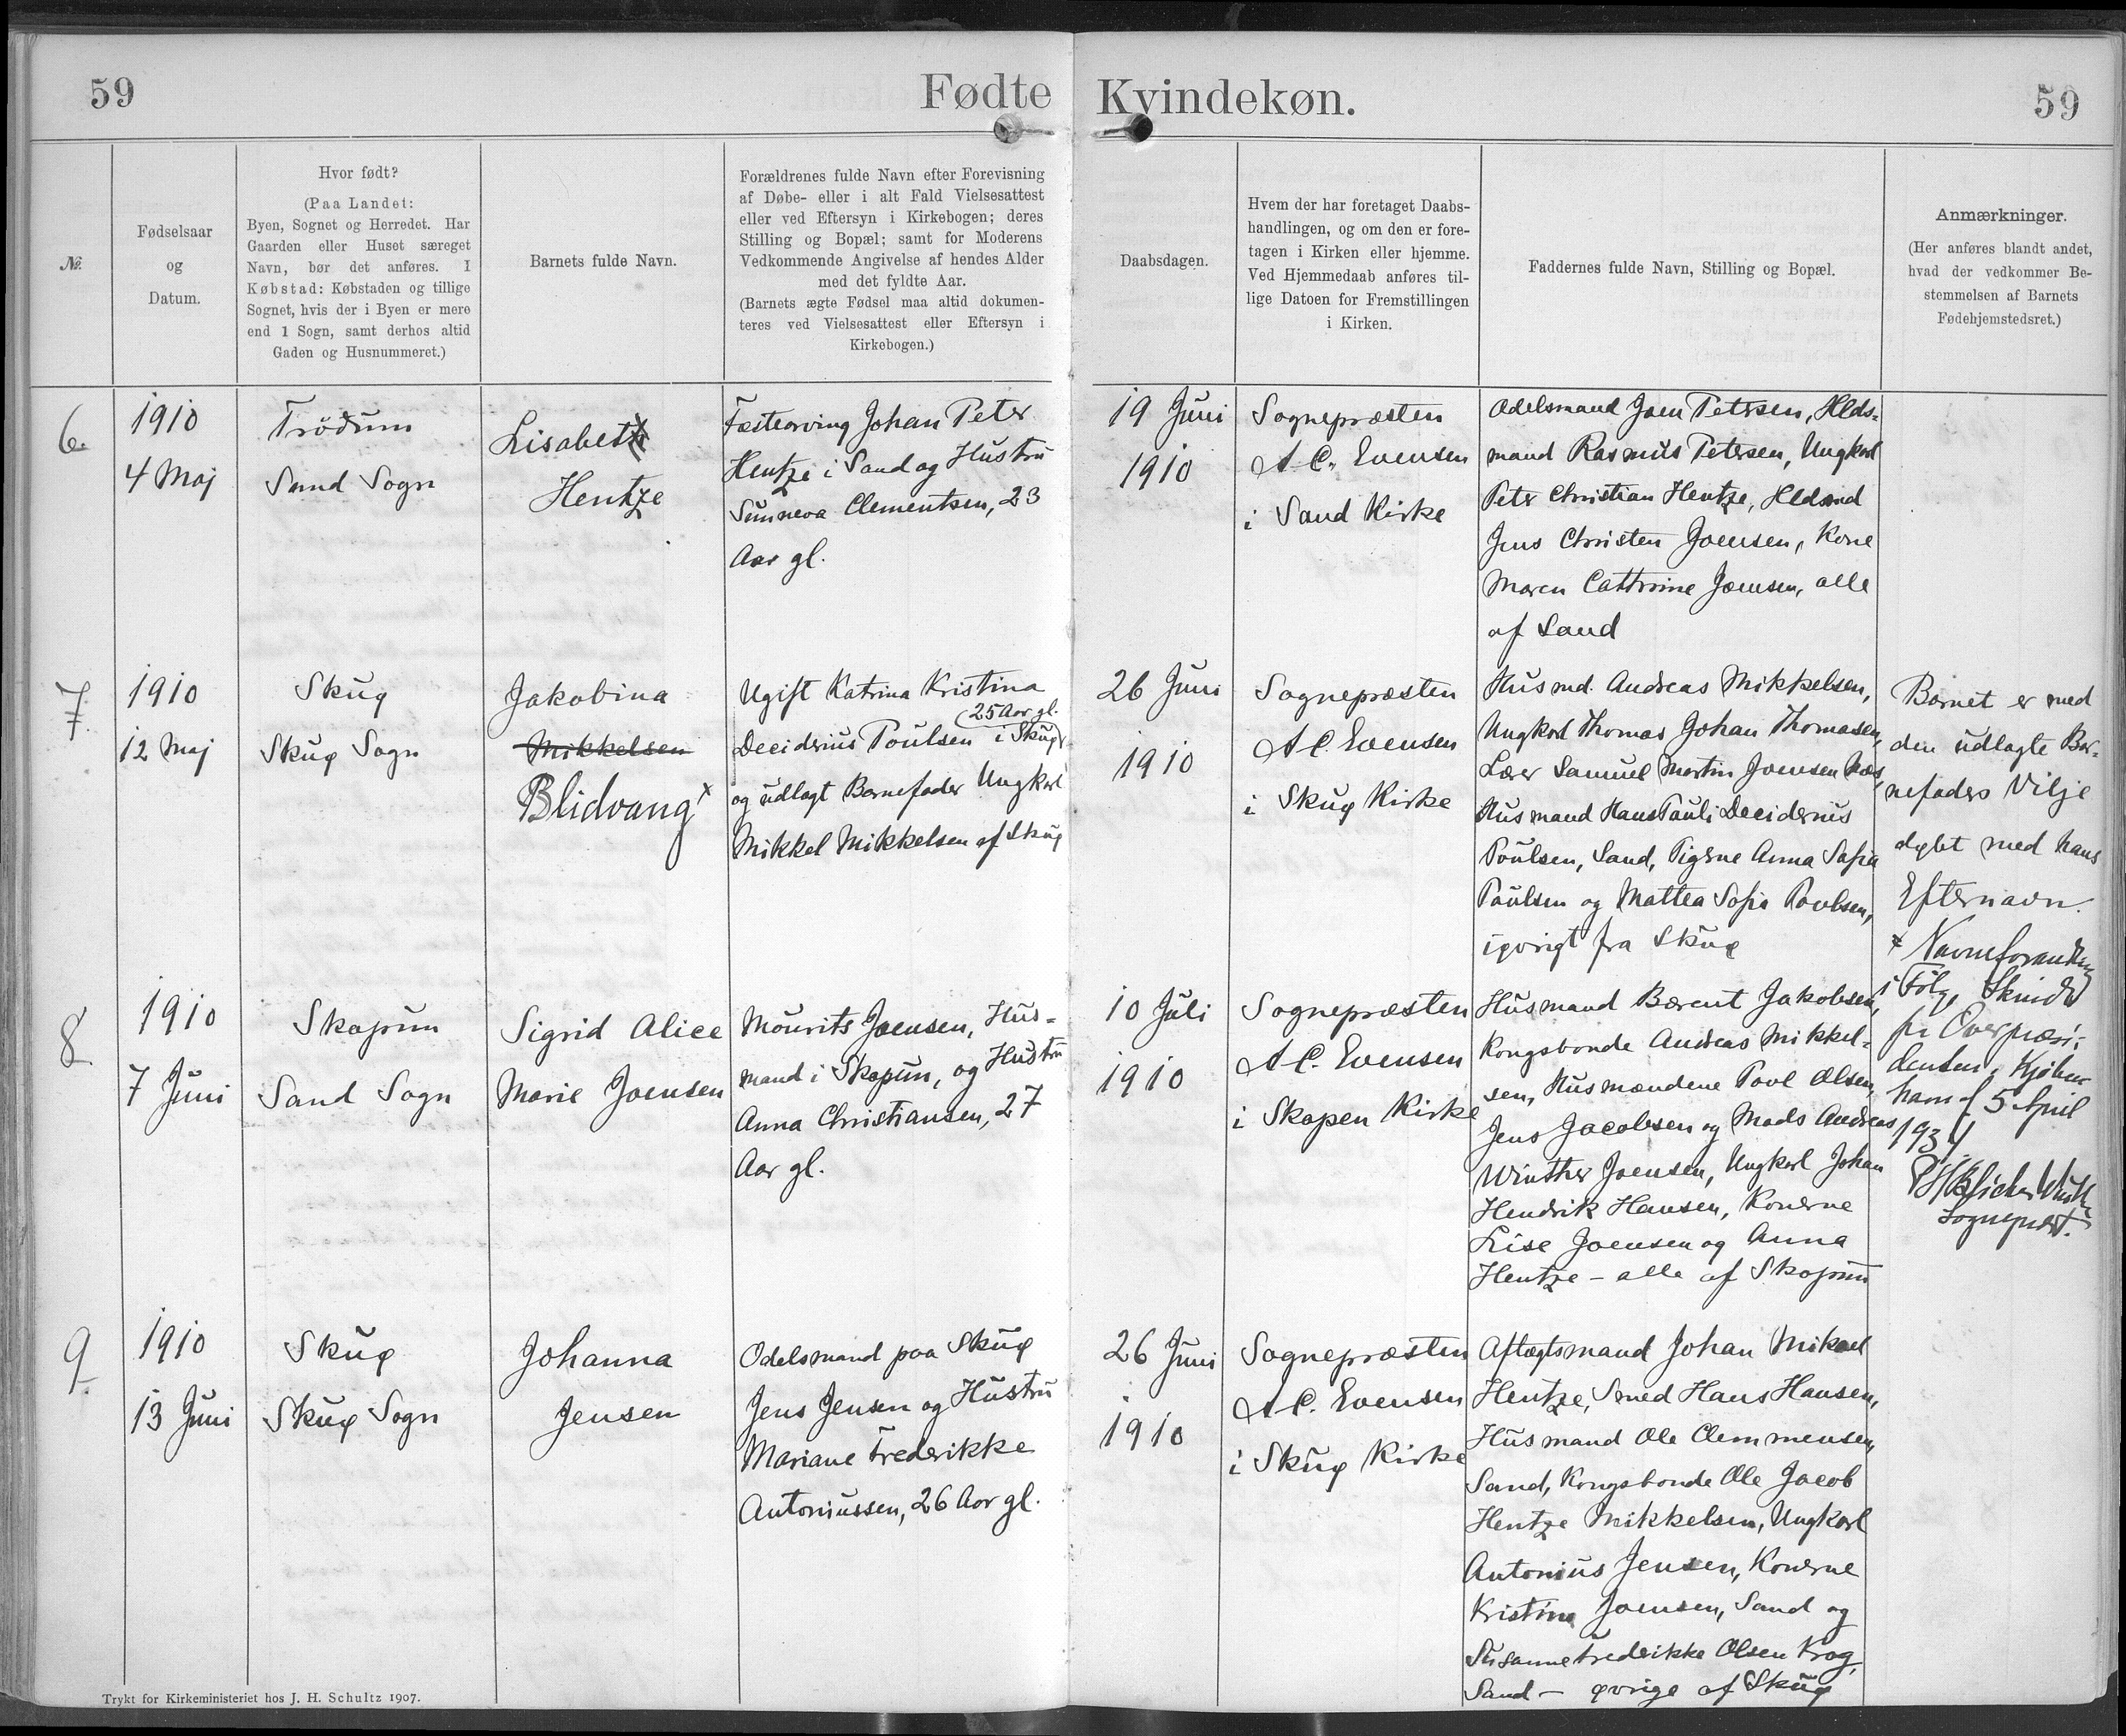 59
Fødte
Kvindekøn.
59
№
Fødselsaar
og
Datum.
Hvor født?
(Paa Landet:
Byen, Sognet og Herredet. Har
Gaarden eller Huset særeget
Navn, bør det anføres. I
Købstad: Købstaden og tillige
Sognet, hvis der i Byen er mere
end 1 Sogn, samt derhos altid
Gaden og Husnummeret.)
Barnets fulde Navn.
Forældrenes fulde Navn efter Forevisning
af Døbe- eller i alt Fald Vielsesattest
eller ved Eftersyn i Kirkebogen; deres
Stilling og Bopæl; samt for Moderens
Vedkommende Angivelse af hendes Alder
med det fyldte Aar.
(Barnets ægte Fødsel maa altid dokumen-
teres ved Vielsesattest eller Eftersyn i
Kirkebogen.)
Daabsdagen.
Hvem der har foretaget Daabs-
handlingen, og om den er fore-
tagen i Kirken eller hjemme.
Ved Hjemmedaab anføres til-
lige Datoen for Fremstillingen
i Kirken.
Faddernes fulde Navn, Stilling og Bopæl.
Anmærkninger.
(Her anføres blandt andet,
hvad der vedkommer Be-
stemmelsen af Barnets
Fødehjemstedsret.)
6.
1910
4 Maj
Trödum
Sand Sogn
Lisabeth
Hentze
Fæstearving Johan Peter
Hentze i Sand og Hustru
Sunneva Clementsen, 23
Aar gl.
19 Juni
1910
Sognepræsten
A. C. Evensen
i Sand Kirke
Odelsmand Joen Petersen, Hds-
mand Rasmus Petersen, Ungkarl
Peter Christian Hentze, Hdsmd
Jens Christen Joensen, Kone
Maren Cathrine Joensen, alle
af Sand
7.
1910
12 Maj
Skuø
Skuø Sogn
Jakobina
Mikkelsen
Blidvang x
Ugift Katrina Kristina
(25 Aar gl.
Deciderius Poulsen i Skuø
og udlagt Barnefader Ungkarl
Mikkel Mikkelsen af Skuø
26 Juni
1910
Sognepræsten
A. C. Evensen
i Skuø Kirke
Husmd. Andreas Mikkelsen,
Ungkarl Thomas Johan Thomasen,
Lærer Samuel Martin Joensen
Husmand Hans Pauli Deciderius
Poulsen, Sand, Pigerne Anna Sofia
Poulsen og Mattea Sofia Poulsen,
iøvrigt fra Skuø
Barnet er med
den udlagte Bar-
nefaders Vilje
døbt med hans
Efternavn.
x Navneforandring
i Følge Skrivelse
fra Overpræsi-
denten i Kjøben-
havn af 5 April
1934
Sognepræst.
8
1910
7 Juni
Skopun
Sand Sogn
Sigrid Alice
Marie Joensen
Mourits Joensen, Hus-
mand i Skopun, og Hustru
Anna Christiansen, 27
Aar gl.
10 Juli
1910
Sognepræsten
A. C. Evensen
i Skopen Kirke
Husmand Bærent Jakobsen,
Kongsbonde Andreas Mikkel-
sen, Husmændene Povl Olsen,
Jens Jacobsen og Mads Andreas
Winther Joensen, Ungkarl Johan
Hendrik Hansen, Konerne
Lise Joensen og Anna
Hentze - alle af Skopun
9.
1910
13 Juni
Skuø
Skuø Sogn
Johanna
Jensen
Odelsmand paa Skuø
Jens Jensen og Hustru
Mariane Frederikke
Antoniussen, 26 Aar gl.
26 Juni
1910
Sognepræsten
A. C. Evensen
i Skuø Kirke
Aftægtsmand Johan Mikael
Hentze, Smed Hans Hansen,
Husmand Ole Clemmensen,
Sand, Kongsbonde Ole Jacob
Hentze Mikkelsen, Ungkarl
Antonius Jensen, Konerne
Kristine Joensen, Sand og
Susanne Frederikke Olsen Krog,
Sand - øvrige af Skuø
Trykt for Kirkeministeriet hos J. H. Schultz 1907.